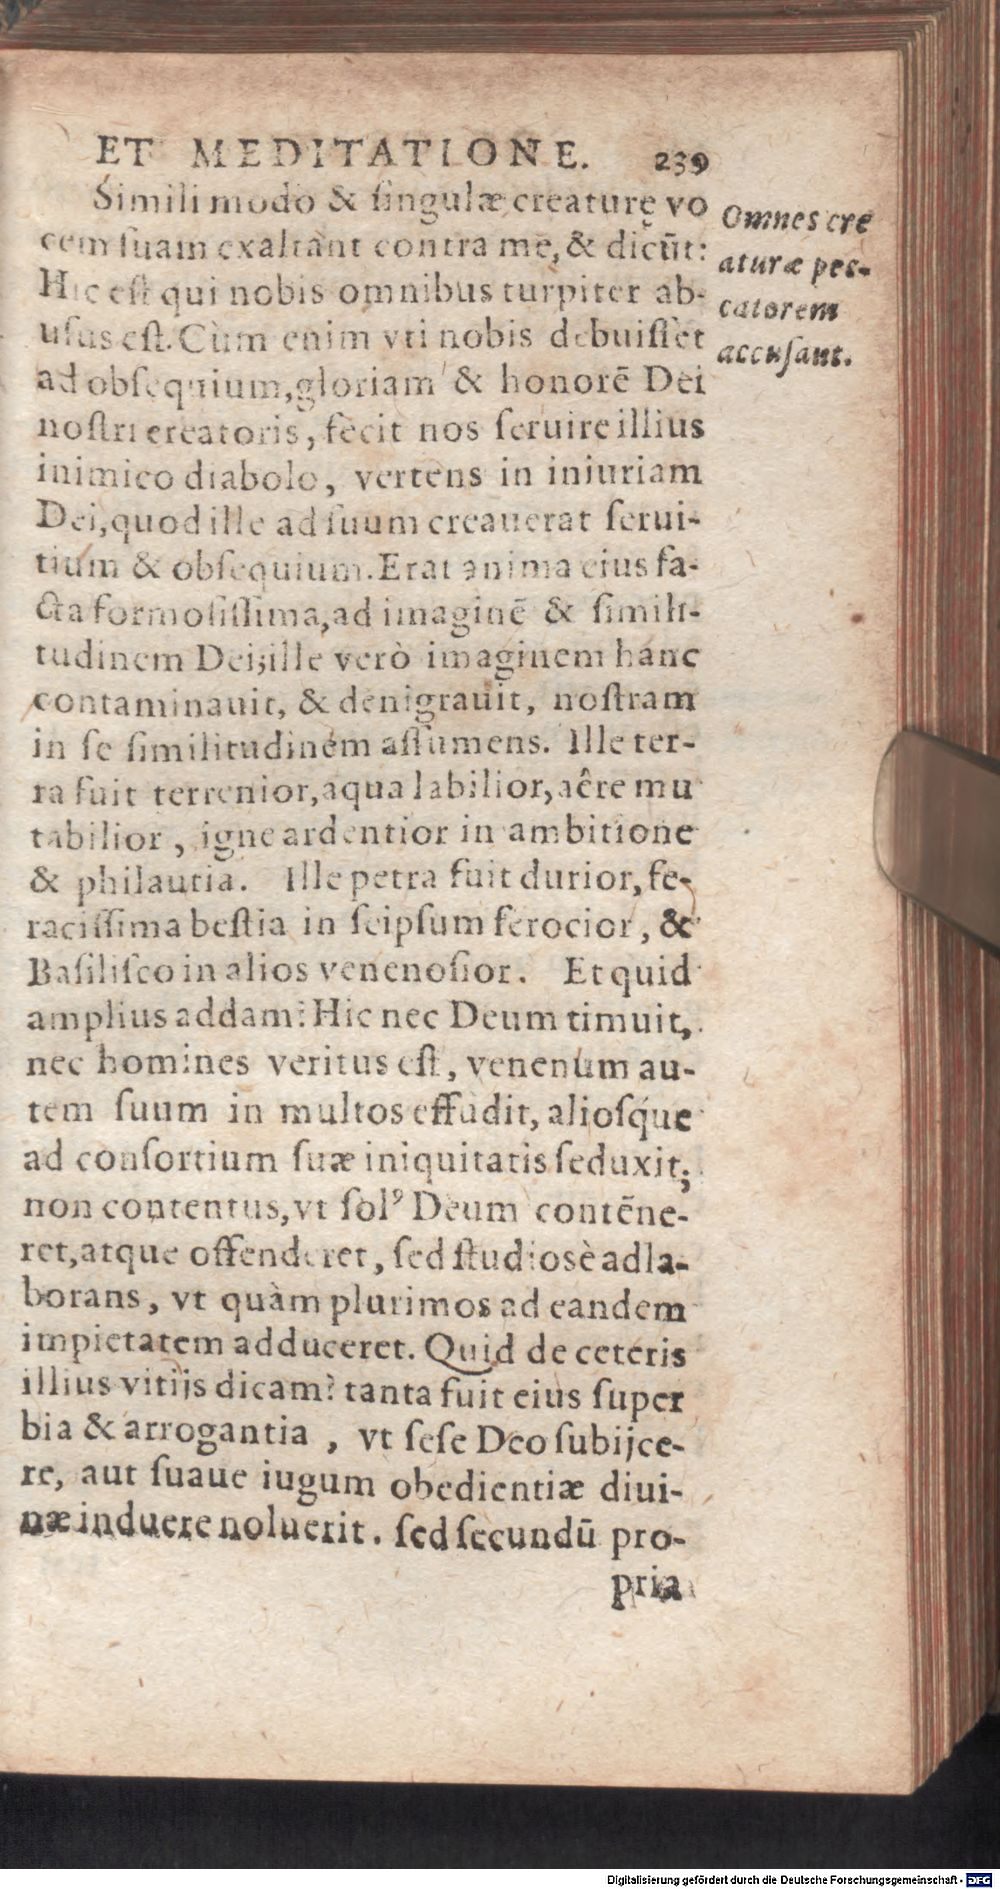 ET MEDITATIONE. 239
Simili modo & ſingulæ creaturę vo
cem ſuam exaltant contra me, & dicūt:
Hic eſt qui nobis omnibus turpiter ab-
uſus eſt. Cùm enim vti nobis debuiſſet
ad obſequium, gloriam & honorē Dei
noſtri creatoris, fecit nos ſeruire illius
inimico diabolo, vertens in iniuriam
Dei, quod ille ad ſuum creauerat ſerui-
tium & obſequium. Erat anima eius fa-
cta formoſiſſima, ad imaginē & ſimili-
tudinem Dei; ille verò imaginem hanc
contaminauit, & denigrauit, noſtram
in ſe ſimilitudinem aſſumens. Ille ter-
ra fuit terrenior, aqua labilior, aëre mu
tabilior, igne ardentior in ambitione
& philautia. Ille petra fuit durior, fe-
raciſſima beſtia in ſeipſum ferocior, &
Baſiliſco in alios venenoſior. Et quid
amplius addam? Hic nec Deum timuit,
nec homines veritus eſt, venenum au-
tem ſuum in multos effudit, alioſq́ue
ad conſortium ſuæ iniquitatis ſeduxit;
non contentus, vt ſolꝰ Deum contēne-
ret, atque offenderet, ſed ſtudiosè adla-
borans, vt quàm plurimos ad eandem
impietatem adduceret. Quid de ceteris
illius vitijs dicam? tanta fuit eius ſuper
bia & arrogantia, vt ſeſe Deo ſubijce-
re, aut ſuaue iugum obedientiæ diui-
næ induere noluerit. ſed ſecundū pro-
pria
Omnes cre
aturæ pec-
catorem
accuſant.
Digitalisierung gefördert durch die Deutsche Forschungsgemeinschaft - DFG